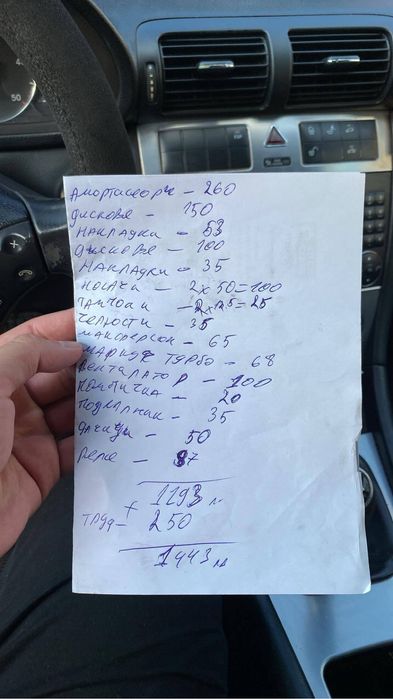 50
Амортисеори - 260
дискове - 150
накладки - 53
дискове - 100
накладки - 35
носачи - 2x50=100
тампони - 2x12.5=25
челюсти - 35
макферсон - 65
маркуч турбо - 68
вентилатор - 100
компичка - 20
подлагник - 35
датчици - 50
реле - 87
1193 лв
+
труд - 250
1443 лв